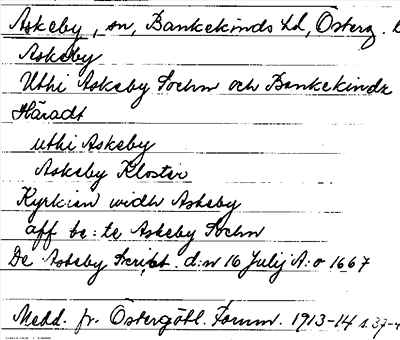 Askeby, sn, Bankekinds hd, Österg. l
Askeby
Uthi Askeby Sochn och Bankekindz
Häradt
uthi Askeby
Askeby Kloster
Kyrkian widh Askeby
aff be:te Askeby Sochn
De Askeby Script. d:n 16 Julij A:o 1667
Medd. fr. Östergötl. Fornm. 1913-14 s. 37-